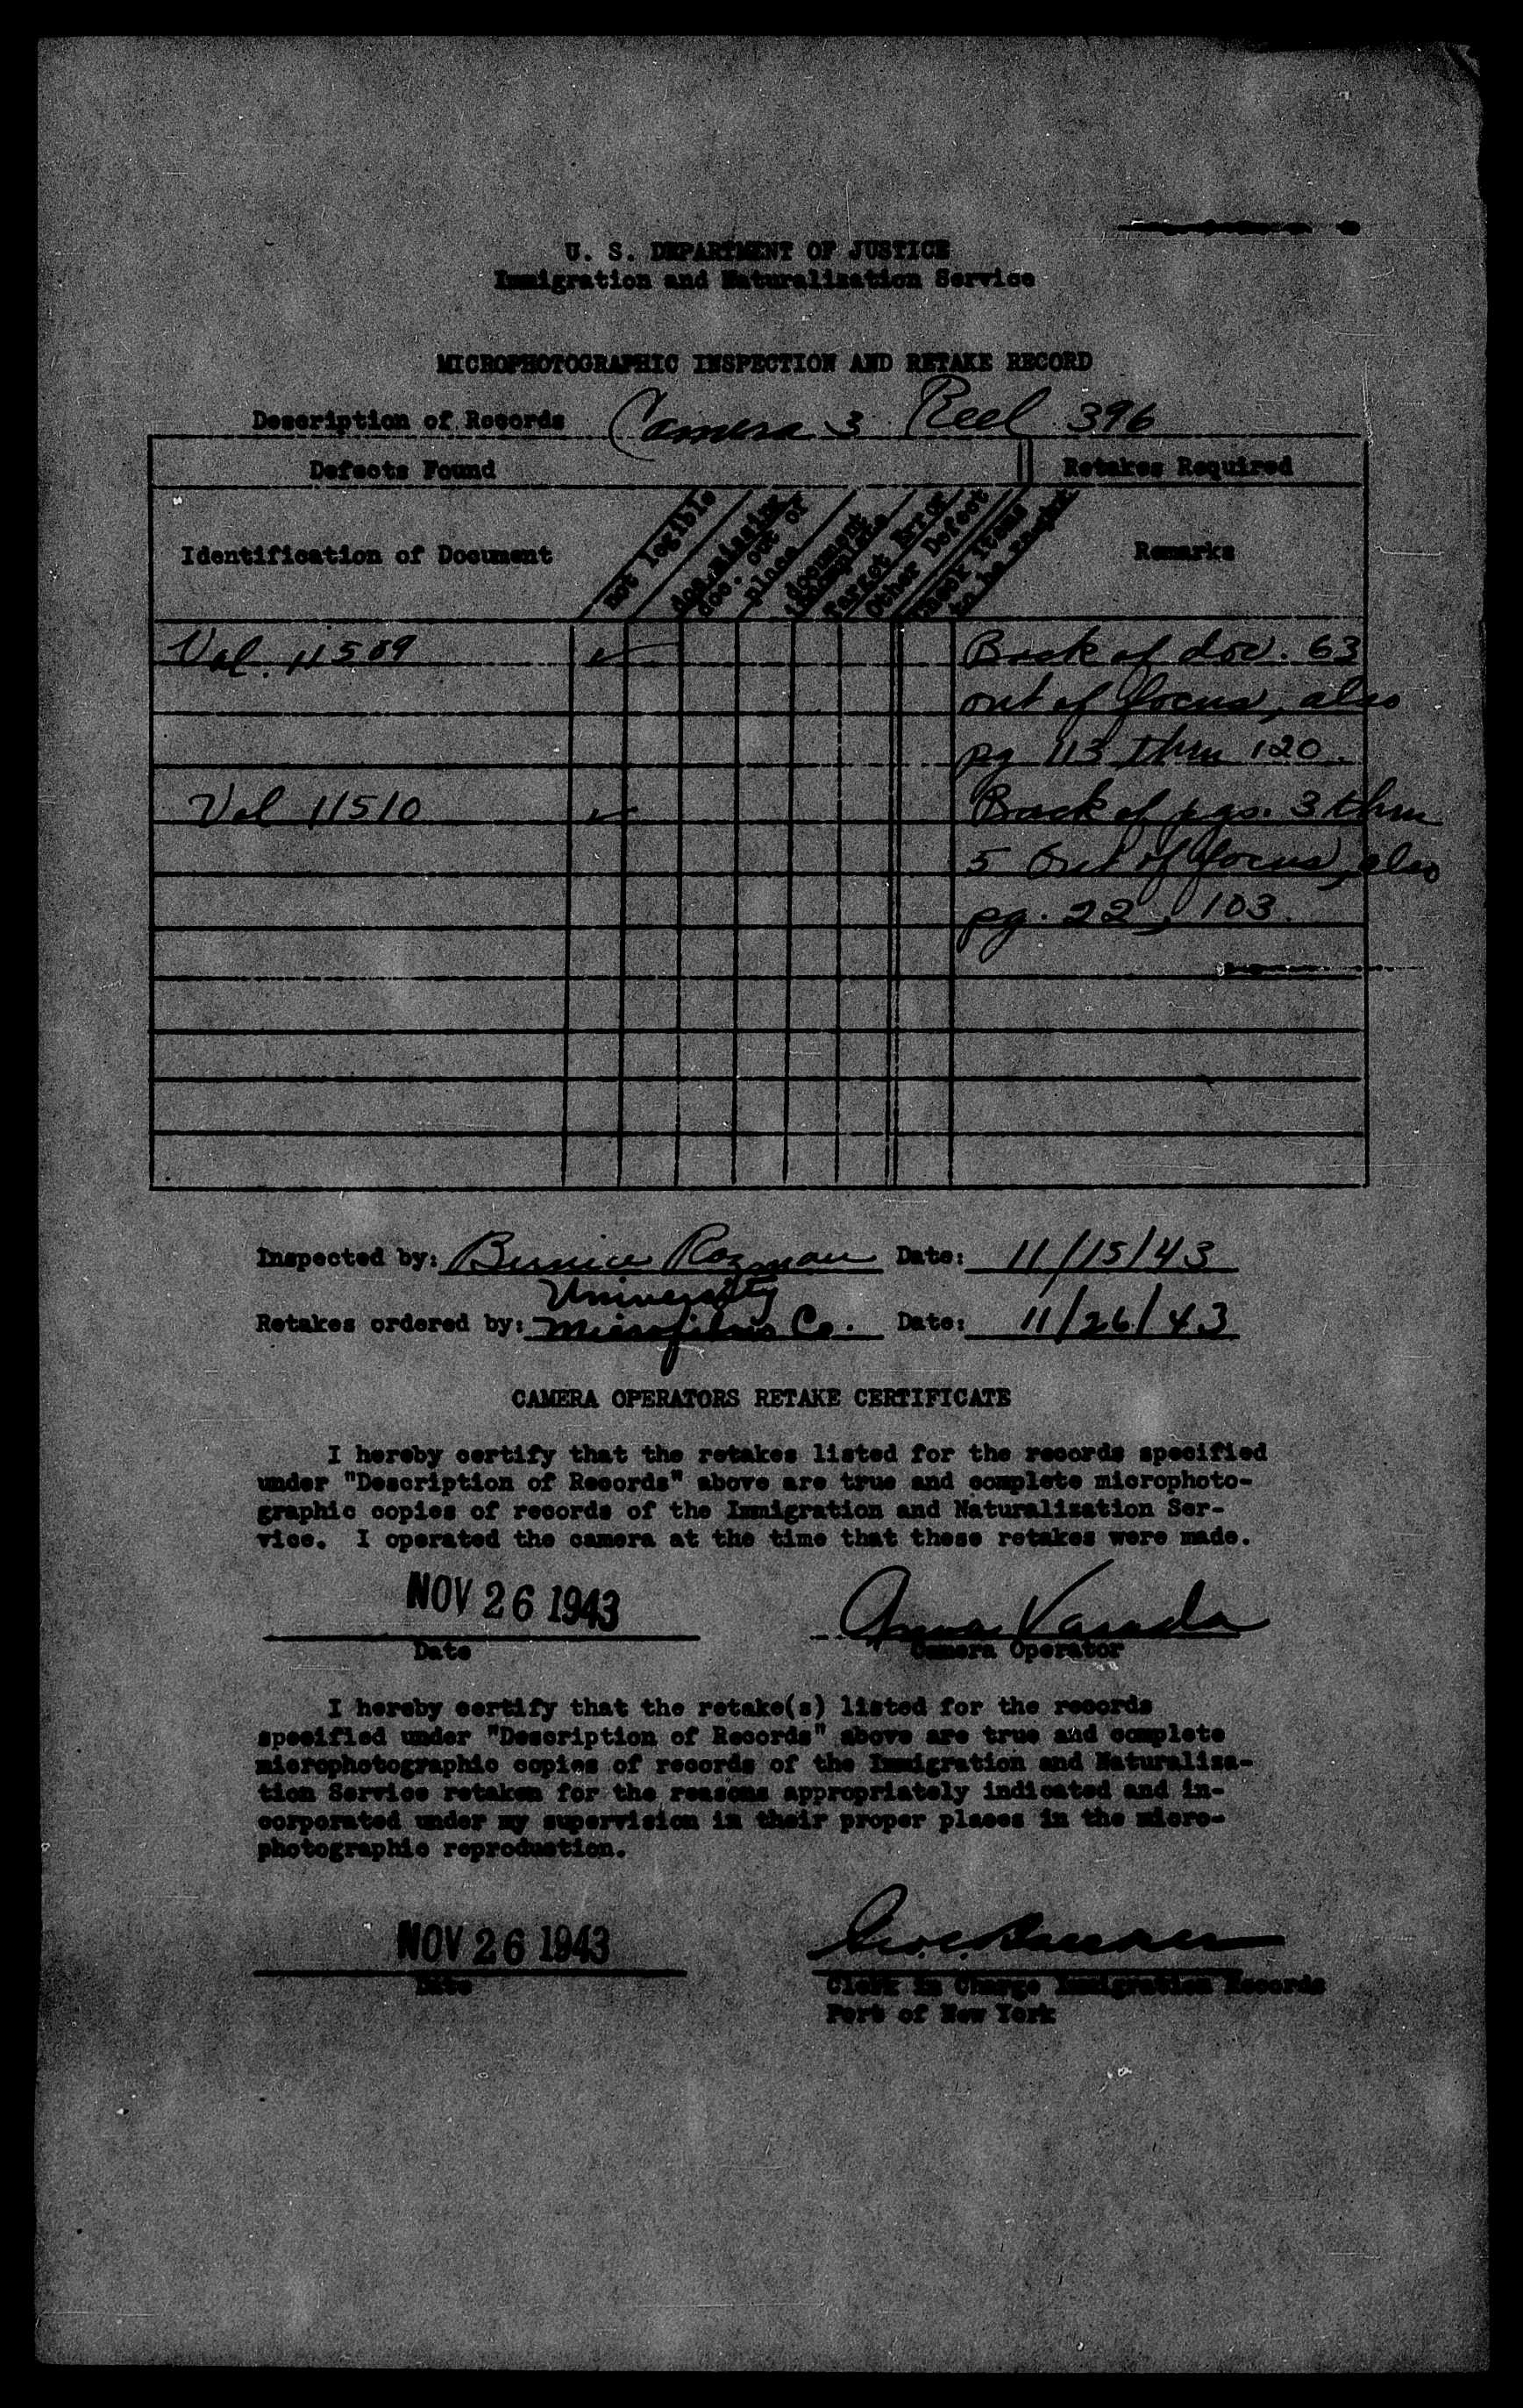 U. S. DEPARTMENT OF JUSTICE
Immigration and Naturalization Service
MICROPHOTOGRAPHIC INSPECTION AND RETAKE RECORD
Description of Records Camera 3 Reel 396
Defects Found Retakes Required
Identification of Document
not legible
doc. missing
doc. out of
place
document
incomplete
Target Error
Other Defect
Check items
to be
Remarks
Vol. 11509 ✓ Back of doc. 63
out of focus, also
pg 113 thru 120.
Vol 11510 ✓ Back of pgs. 3 thru
5 out of focus, also
pg. 22, 103.
Inspected by: Bernice Rozman Date: 11/15/43
University
Retakes ordered by: Microfilms Co. Date: 11/26/43
CAMERA OPERATORS RETAKE CERTIFICATE
I hereby certify that the retakes listed for the records specified
under "Description of Records" above are true and complete microphoto-
graphic copies of records of the Immigration and Naturalization Ser-
vice. I operated the camera at the time that these retakes were made.
NOV 26 1943 Anna
Date Camera Operator
I hereby certify that the retake(s) listed for the records
specified under "Description of Records" above are true and complete
microphotographic copies of records of the Immigration and Naturaliza-
tion Service retaken for the reasons appropriately indicated and in-
corporated under my supervision in their proper places in the micro-
photographic reproduction.
NOV 26 1943
Date Clerk in Charge Immigration Records
Port of New York